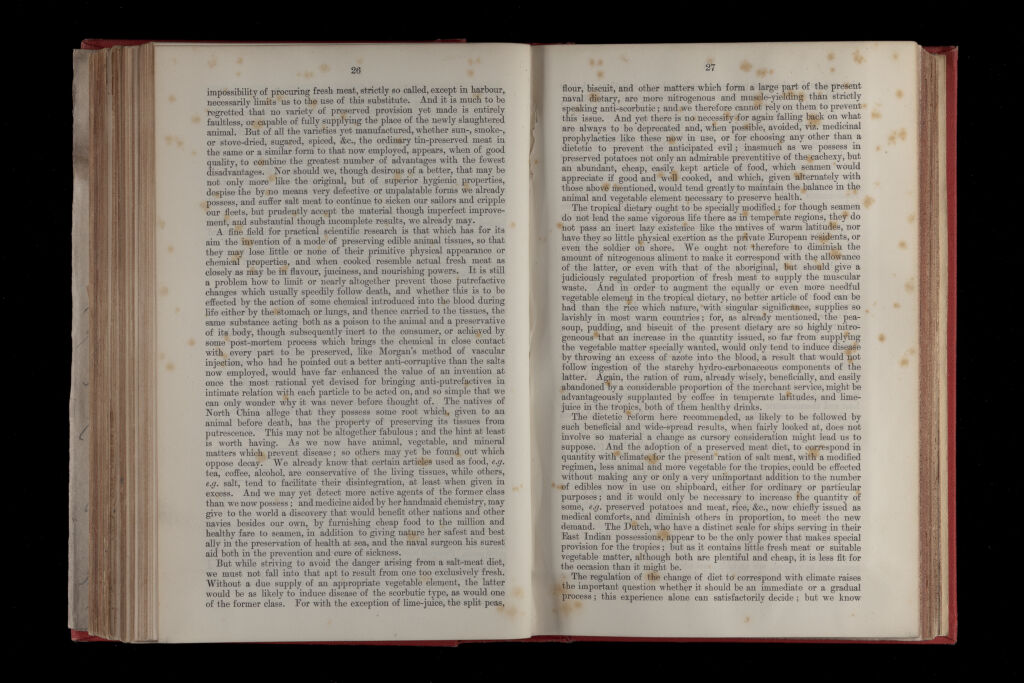 26
impossibility of procuring fresh meat, strictly so called, except in harbour,
necessarily limits us to the use of this substitute. And it is much to be
regretted that no variety of preserved provision yet made is entirely
faultless, or capable of fully supplying the place of the newly slaughtered
animal. But of all the varieties yet manufactured, whether sun-, smoke-,
or stove-dried, sugared, spiced, &c., the ordinary tin-preserved meat in
the same or a similar form to that now employed, appears, when of good
quality, to combine the greatest number of advantages with the fewest
disadvantages. Nor should we, though desirous of a better, that may be
not only more like the original, but of superior hygienic properties,
despise the by no means very defective or unpalatable forms we already
possess, and suffer salt meat to continue to sicken our sailors and cripple
our fleets, but prudently accept the material though imperfect improve-
ment, and substantial though incomplete results, we already may.
A fine field for practical scientific research is that which has for its
aim the invention of a mode of preserving edible animal tissues, so that
they may lose little or none of their primitive physical appearance or
chemical properties, and when cooked resemble actual fresh meat as
closely as may be in flavour, juiciness, and nourishing powers. It is still
a problem how to limit or nearly altogether prevent those putrefactive
changes which usually speedily follow death, and whether this is to be
effected by the action of some chemical introduced into the blood during
life either by the stomach or lungs, and thence carried to the tissues, the
same substance acting both as a poison to the animal and a preservative
of its body, though subsequently inert to the consumer, or achieved by
some post-mortem process which brings the chemical in close contact
with every part to be preserved, like Morgan's method of vascular
injection, who had he pointed out a better anti-corruptive than the salts
now employed, would have far enhanced the value of an invention at
once the most rational yet devised for bringing anti-putrefactives in
intimate relation with each particle to be acted on, and so simple that we
can only wonder why it was never before thought of. The natives of
North China allege that they possess some root which, given to an
animal before death, has the property of preserving its tissues from
putrescence. This may not be altogether fabulous; and the hint at least
is worth having. As we now have animal, vegetable, and mineral
matters which prevent disease; so others may yet be found out which
oppose decay. We already know that certain articles used as food, e.g.
tea, coffee, alcohol, are conservative of the living tissues, while others,
e.g. salt, tend to facilitate their disintegration, at least when given in
excess. And we may yet detect more active agents of the former class
than we now possess; and medicine aided by her handmaid chemistry, may
give to the world a discovery that would benefit other nations and other
navies besides our own, by furnishing cheap food to the million and
healthy fare to seamen, in addition to giving nature her safest and best
ally in the preservation of health at sea, and the naval surgeon his surest
aid both in the prevention and cure of sickness.
But while striving to avoid the danger arising from a salt-meat diet,
we must not fall into that apt to result from one too exclusively fresh.
Without a due supply of an appropriate vegetable element, the latter
would be as likely to induce disease of the scorbutic type, as would one
of the former class. For with the exception of lime-juice, the split peas,
27
flour, biscuit, and other matters which form a large part of the present
naval dietary, are more nitrogenous and muscle-yielding than strictly
speaking anti-scorbutic; and we therefore cannot rely on them to prevent
this issue. And yet there is no necessity for again falling back on what
are always to be deprecated and, when possible, avoided, viz. medicinal
prophylactics like these now in use, or for choosing any other than a
dietetic to prevent the anticipated evil; inasmuch as we possess in
preserved potatoes not only an admirable preventitive of the cachexy, but
an abundant, cheap, easily kept article of food, which seamen would
appreciate if good and well cooked, and which, given alternately with
those above mentioned, would tend greatly to maintain the balance in the
animal and vegetable element necessary to preserve health.
The tropical dietary ought to be specially modified; for though seamen
do not lead the same vigorous life there as in temperate regions, they do
not pass an inert lazy existence like the natives of warm latitudes, nor
have they so little physical exertion as the private European residents, or
even the soldier on shore. We ought not therefore to diminish the
amount of nitrogenous aliment to make it correspond with the allowance
of the latter, or even with that of the aboriginal, but should give a
judiciously regulated proportion of fresh meat to supply the muscular
waste. And in order to augment the equally or even more needful
vegetable element in the tropical dietary, no better article of food can be
had than the rice which nature, with singular significance, supplies so
lavishly in most warm countries; for, as already mentioned, the pea-
soup, pudding, and biscuit of the present dietary are so highly nitro-
geneous that an increase in the quantity issued, so far from supplying
the vegetable matter specially wanted, would only tend to induce disease
by throwing an excess of azote into the blood, a result that would not
follow ingestion of the starchy hydro-carbonaceous components of the
latter. Again, the ration of rum, already wisely, beneficially, and easily
abandoned by a considerable proportion of the merchant service, might be
advantageously supplanted by coffee in temperate latitudes, and lime-
juice in the tropics, both of them healthy drinks.
The dietetic reform here recommended, as likely to be followed by
such beneficial and wide-spread results, when fairly looked at, does not
involve so material a change as cursory consideration might lead us to
suppose. And the adoption of a preserved meat diet, to correspond in
quantity with climate, for the present ration of salt meat, with a modified
regimen, less animal and more vegetable for the tropics, could be effected
without making any or only a very unimportant addition to the number
of edibles now in use on shipboard, either for ordinary or particular
purposes; and it would only be necessary to increase the quantity of
some, e.g. preserved potatoes and meat, rice, &c., now chiefly issued as
medical comforts, and diminish others in proportion, to meet the new
demand. The Dutch, who have a distinct scale for ships serving in their
East Indian possessions, appear to be the only power that makes special
provision for the tropics; but as it contains little fresh meat or suitable
vegetable matter, although both are plentiful and cheap, it is less fit for
the occasion than it might be.
The regulation of the change of diet to correspond with climate raises
the important question whether it should be an immediate or a gradual
process; this experience alone can satisfactorily decide; but we know